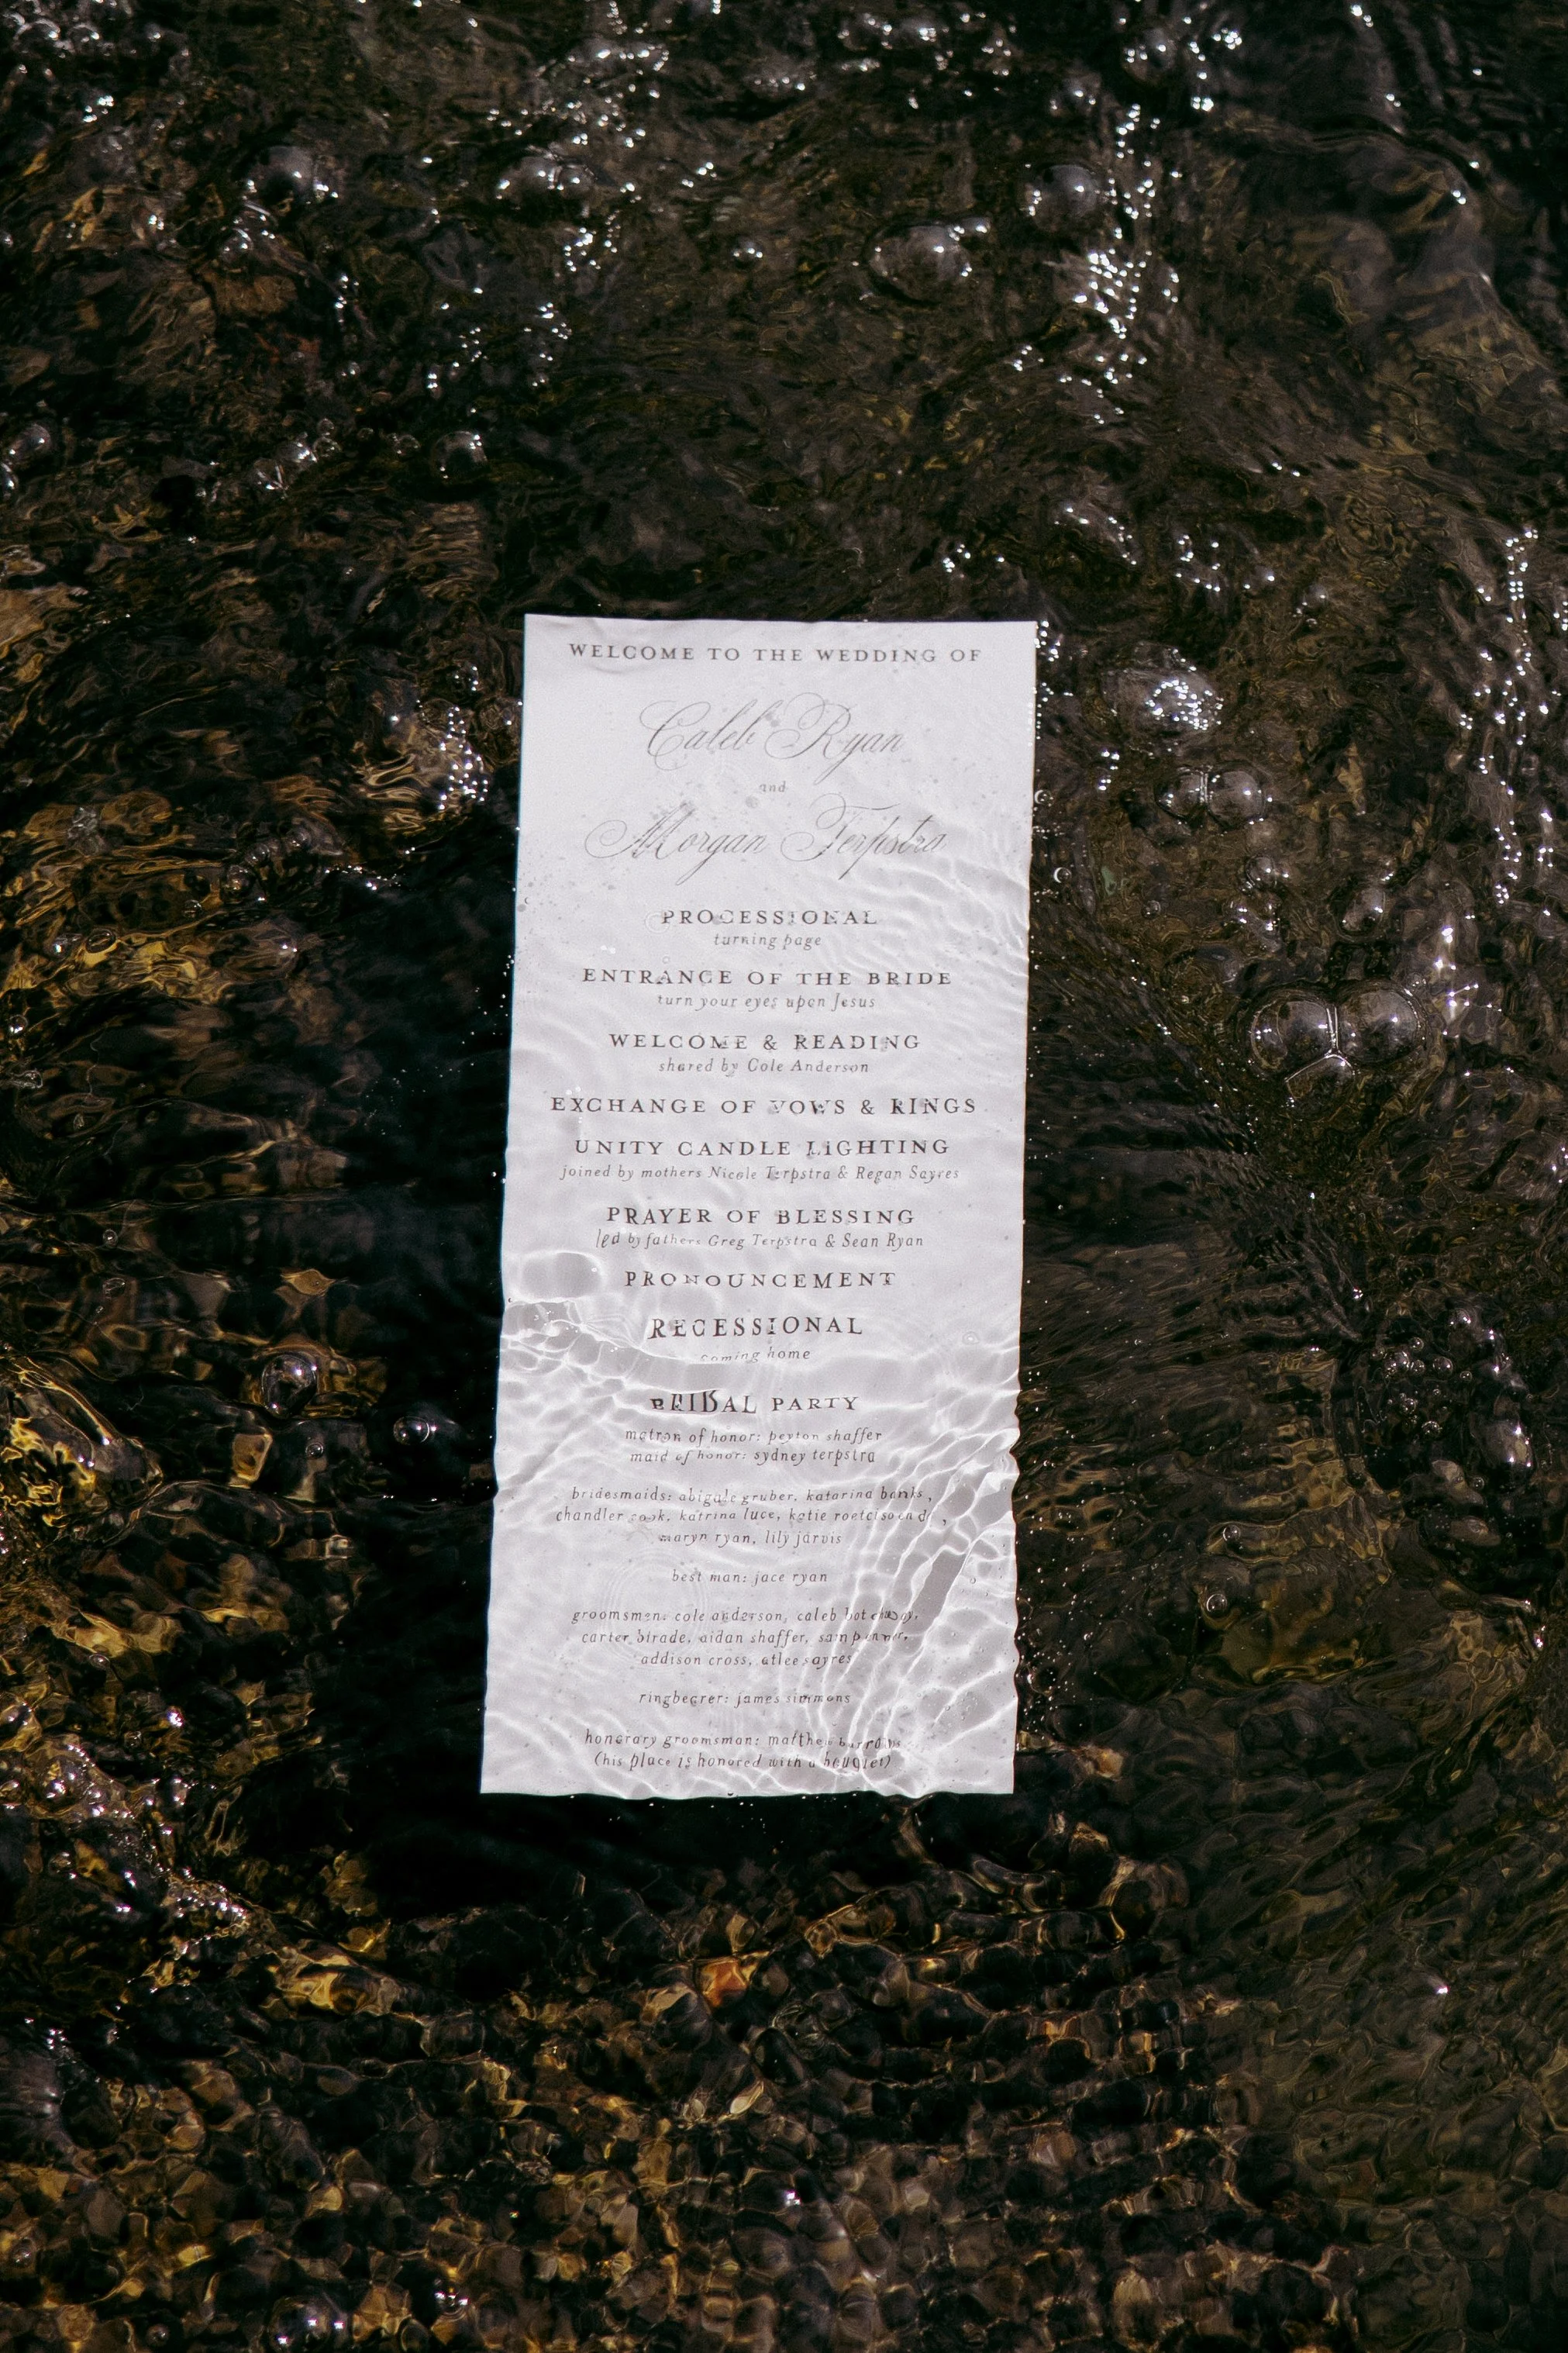 WELCOME TO THE WEDDING OF
Caleb Ryan
and
Morgan Terpstra
PROCESSIONAL
turning page
ENTRANCE OF THE BRIDE
turn your eyes upon Jesus
WELCOME & READING
shared by Cole Anderson
EXCHANGE OF VOWS & RINGS
UNITY CANDLE LIGHTING
joined by mothers Nicole Terpstra & Regan Sayres
PRAYER OF BLESSING
led by fathers Greg Terpstra & Sean Ryan
PRONOUNCEMENT
RECESSIONAL
coming home
BRIDAL PARTY
matron of honor: peyton shaffer
maid of honor: sydney terpstra
bridesmaids: abigale gruber, katarina banks,
chandler cook, katrina luce, katie
maryn ryan, lily jarvis
best man: jace ryan
groomsmen: cole anderson, caleb
carter birade, aidan shaffer, sam
addison cross, atlee sayres
ringbearer: james simmons
honorary groomsman: matthew
(his place is honored with a